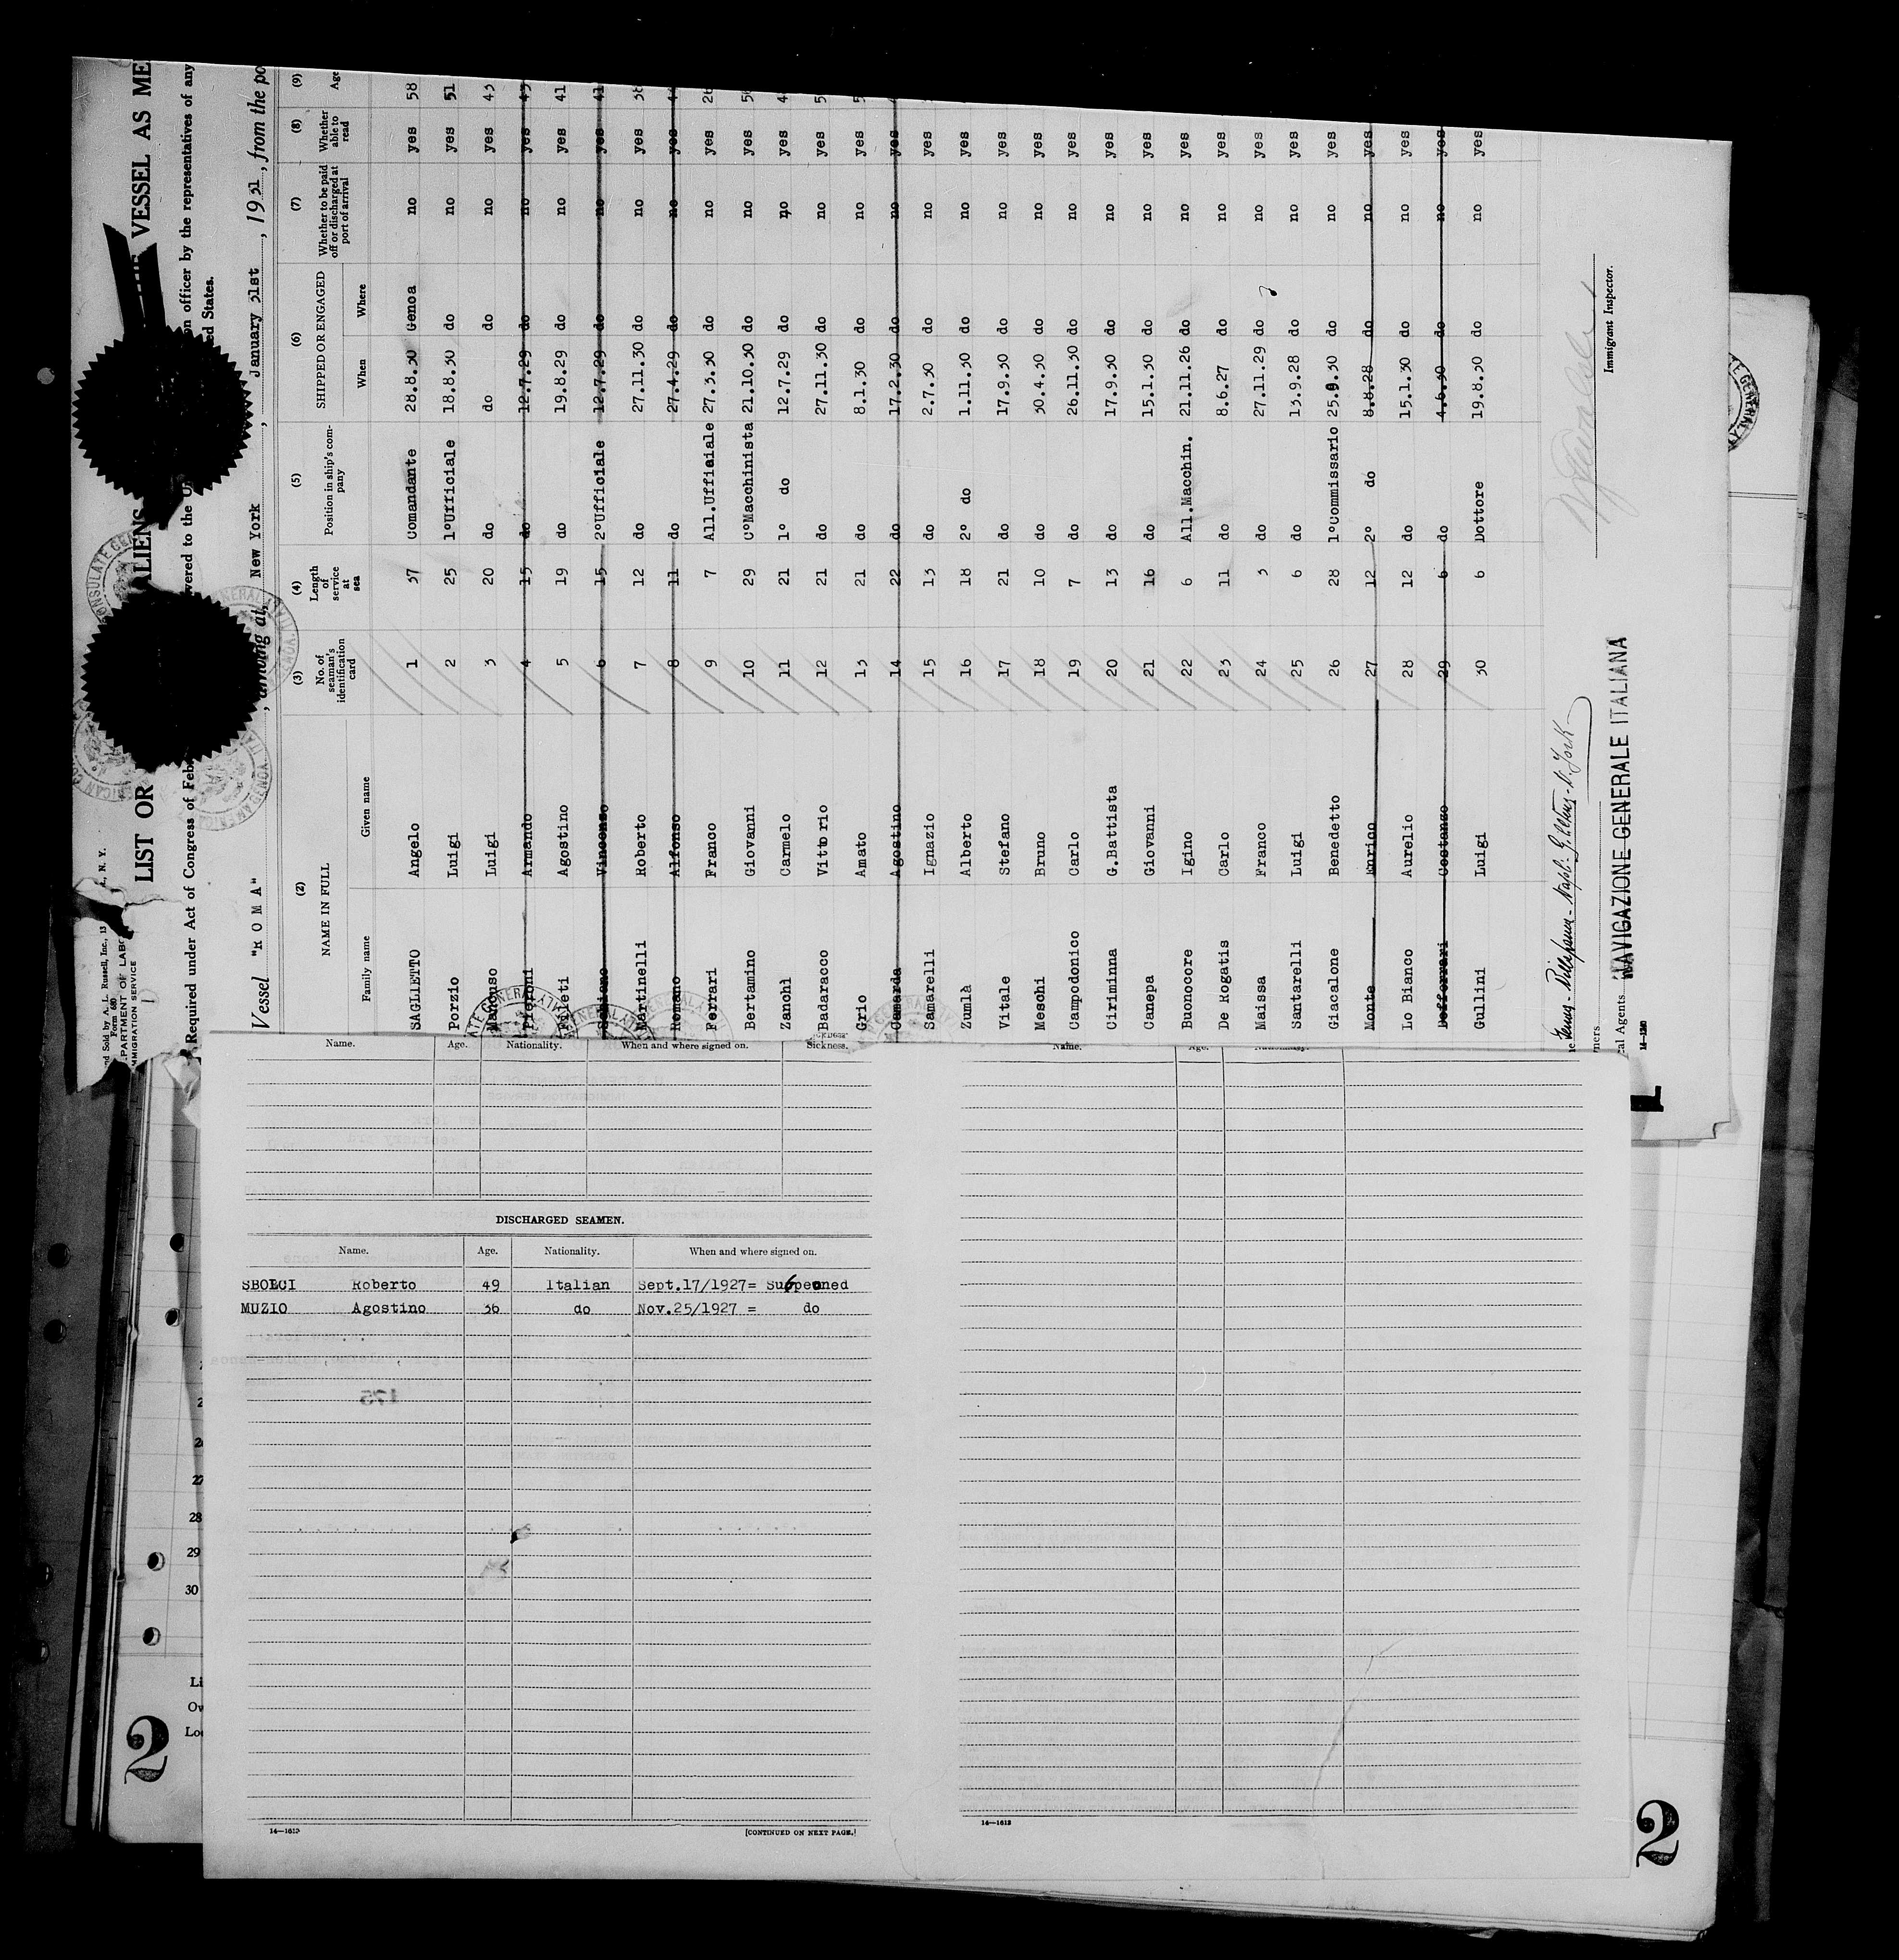 LIST OR ALIENS VESSEL AS ME
Required under Act of Congress of Feb
vered to the U
on officer by the representatives of any
ed States.
Vessel "ROMA", arriving at, New York, January 31st, 1931, from the po
(2) (3) (4) (5) (6) (7) (8) (9)
NAME IN FULL No. of seaman's identification card Length of service at sea Position in ship's company SHIPPED OR ENGAGED Whether to be paid off or discharged at port of arrival Whether able to read Age
Family name Given name When Where
SAGLIETTO Angelo 1 37 Comandante 28.8.30 Genoa no yes 58
Porzio Luigi 2 25 1°Ufficiale 18.8.30 do no yes 51
Luigi 3 20 do do do no yes 43
Pietroni Armando 4 15 do 12.7.29 do no yes 43
Fileti Agostino 5 19 do 19.8.29 do no yes 41
Vincenzo 6 15 2°Ufficiale 12.7.29 do no yes 41
Martinelli Roberto 7 12 do 27.11.30 do no yes 38
Romano Alfonso 8 11 do 27.4.29 do no yes
Ferrari Franco 9 7 All.Ufficiale 27.3.30 do no yes
Bertamino Giovanni 10 29 C°Macchinista 21.10.30 do no yes
Zanchì Carmelo 11 21 1° do 12.7.29 do no yes
Badaracco Vittorio 12 21 do 27.11.30 do no yes
Grio Amato 13 21 do 8.1.30 do no yes
Camarda Agostino 14 22 do 17.2.30 do no yes
Samarelli Ignazio 15 13 do 2.7.30 do no yes
Zumlà Alberto 16 18 2° do 1.11.30 do no yes
Vitale Stefano 17 21 do 17.9.30 do no yes
Moschi Bruno 18 10 do 30.4.30 do no yes
Campodonico Carlo 19 7 do 26.11.30 do no yes
Ciriminna G.Battista 20 13 do 17.9.30 do no yes
Canepa Giovanni 21 16 do 15.1.30 do no yes
Buonocore Igino 22 6 All.Macchin. 21.11.26 do no yes
De Rogatis Carlo 23 11 do 8.6.27 do no yes
Maissa Franco 24 3 do 27.11.29 do no yes
Santarelli Luigi 25 6 do 13.9.28 do no yes
Giacalone Benedetto 26 28 1°Commissario 25.9.30 do no yes
Monte Enrico 27 12 2° do 8.8.28 do no yes
Lo Bianco Aurelio 28 12 do 15.1.30 do no yes
Defferrari Costanzo 29 6 do 4.6.30 do no yes
Gullini Luigi 30 6 Dottore 19.8.30 do no yes
Immigrant Inspector.
NAVIGAZIONE GENERALE ITALIANA
14—1240
Name. Age. Nationality. When and where signed on. Sickness.
Name. Age. Nationality.
DISCHARGED SEAMEN.
Name. Age. Nationality. When and where signed on.
SBOLCI Roberto 49 Italian Sept.17/1927= Suspened
MUZIO Agostino 36 do Nov.25/1927 = do
28
29
30
2
14—1613
[CONTINUED ON NEXT PAGE.]
14—1613
2